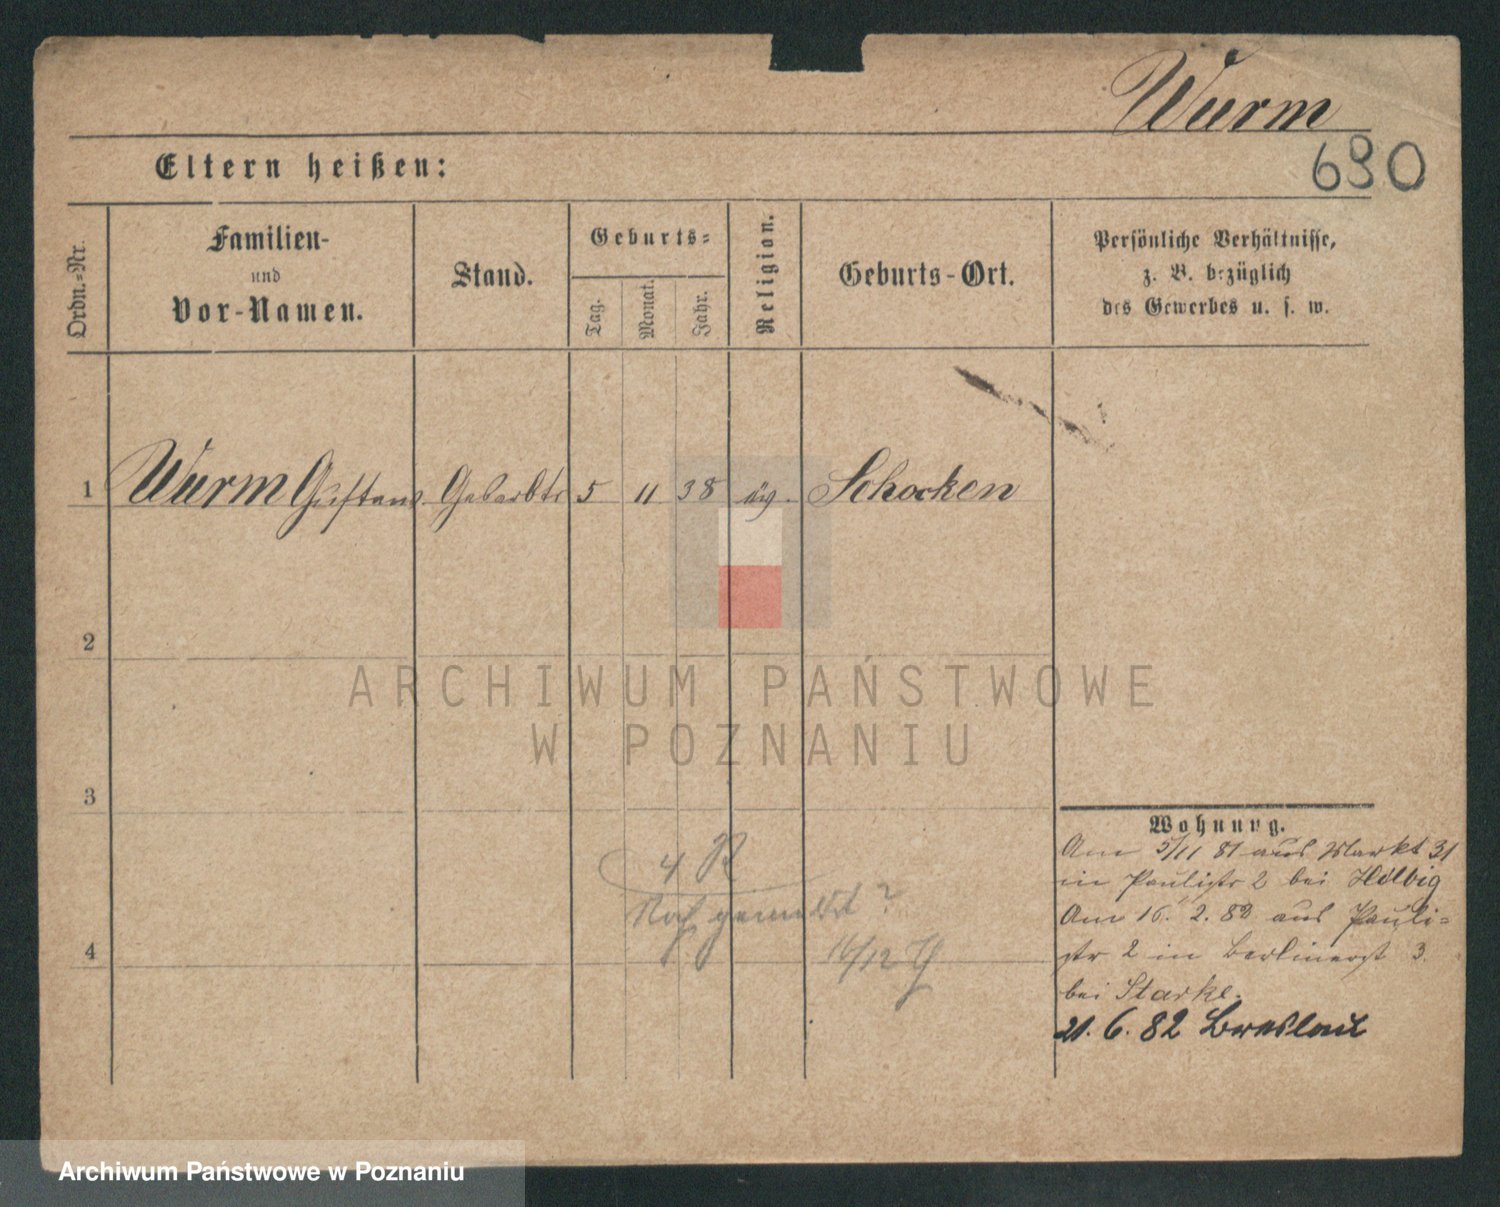 Wurm
690
Eltern heißen:
Ordn.-Nr.
Familien-
und
Vor-Namen.
Stand.
Geburts-
Tag.
Monat.
Jahr.
Religion.
Geburts-Ort.
Persönliche Verhältnisse,
z. B. bezüglich
des Gewerbes u. s. w.
1 Wurm Gustav 5 11 38 Schocken
2
3
4
ARCHIWUM PAŃSTWOWE
W POZNANIU
Wohnung.
Am 5/11 81 aus Markt 31
in Paulistr 2 bei Helbig
Am 16. 2. 82 aus Pauli-
str 2 in Berlinerst 3.
bei Starke.
21. 6. 82 Breslau
4
Noch gemeldet?
16/12
Archiwum Państwowe w Poznaniu